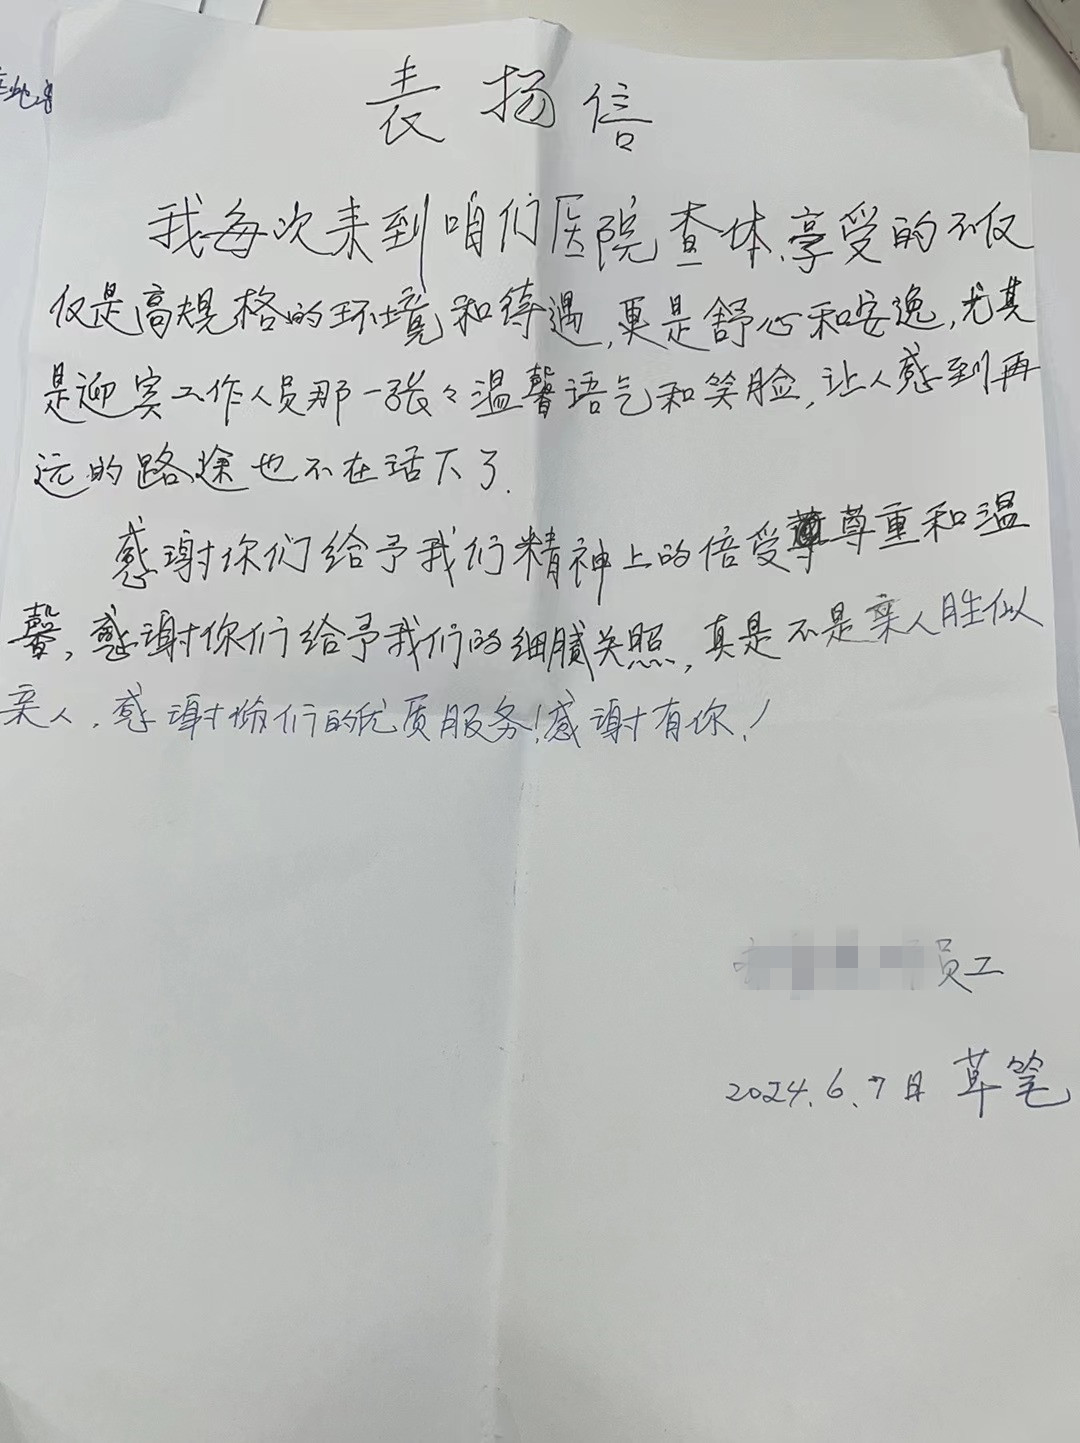 表扬信
我每次来到咱们医院查体,享受的不仅
仅是高规格的环境和待遇,更是舒心和安逸,尤其
是迎宾工作人员那一张々温馨语气和笑脸,让人感到再
远的路途也不在话下了.
感谢你们给予我们精神上的倍受尊重和温
馨,感谢你们给予我们的细腻关照,真是不是亲人胜似
亲人,感谢你们的优质服务!感谢有你!
员工
2024.6.7日 草笔